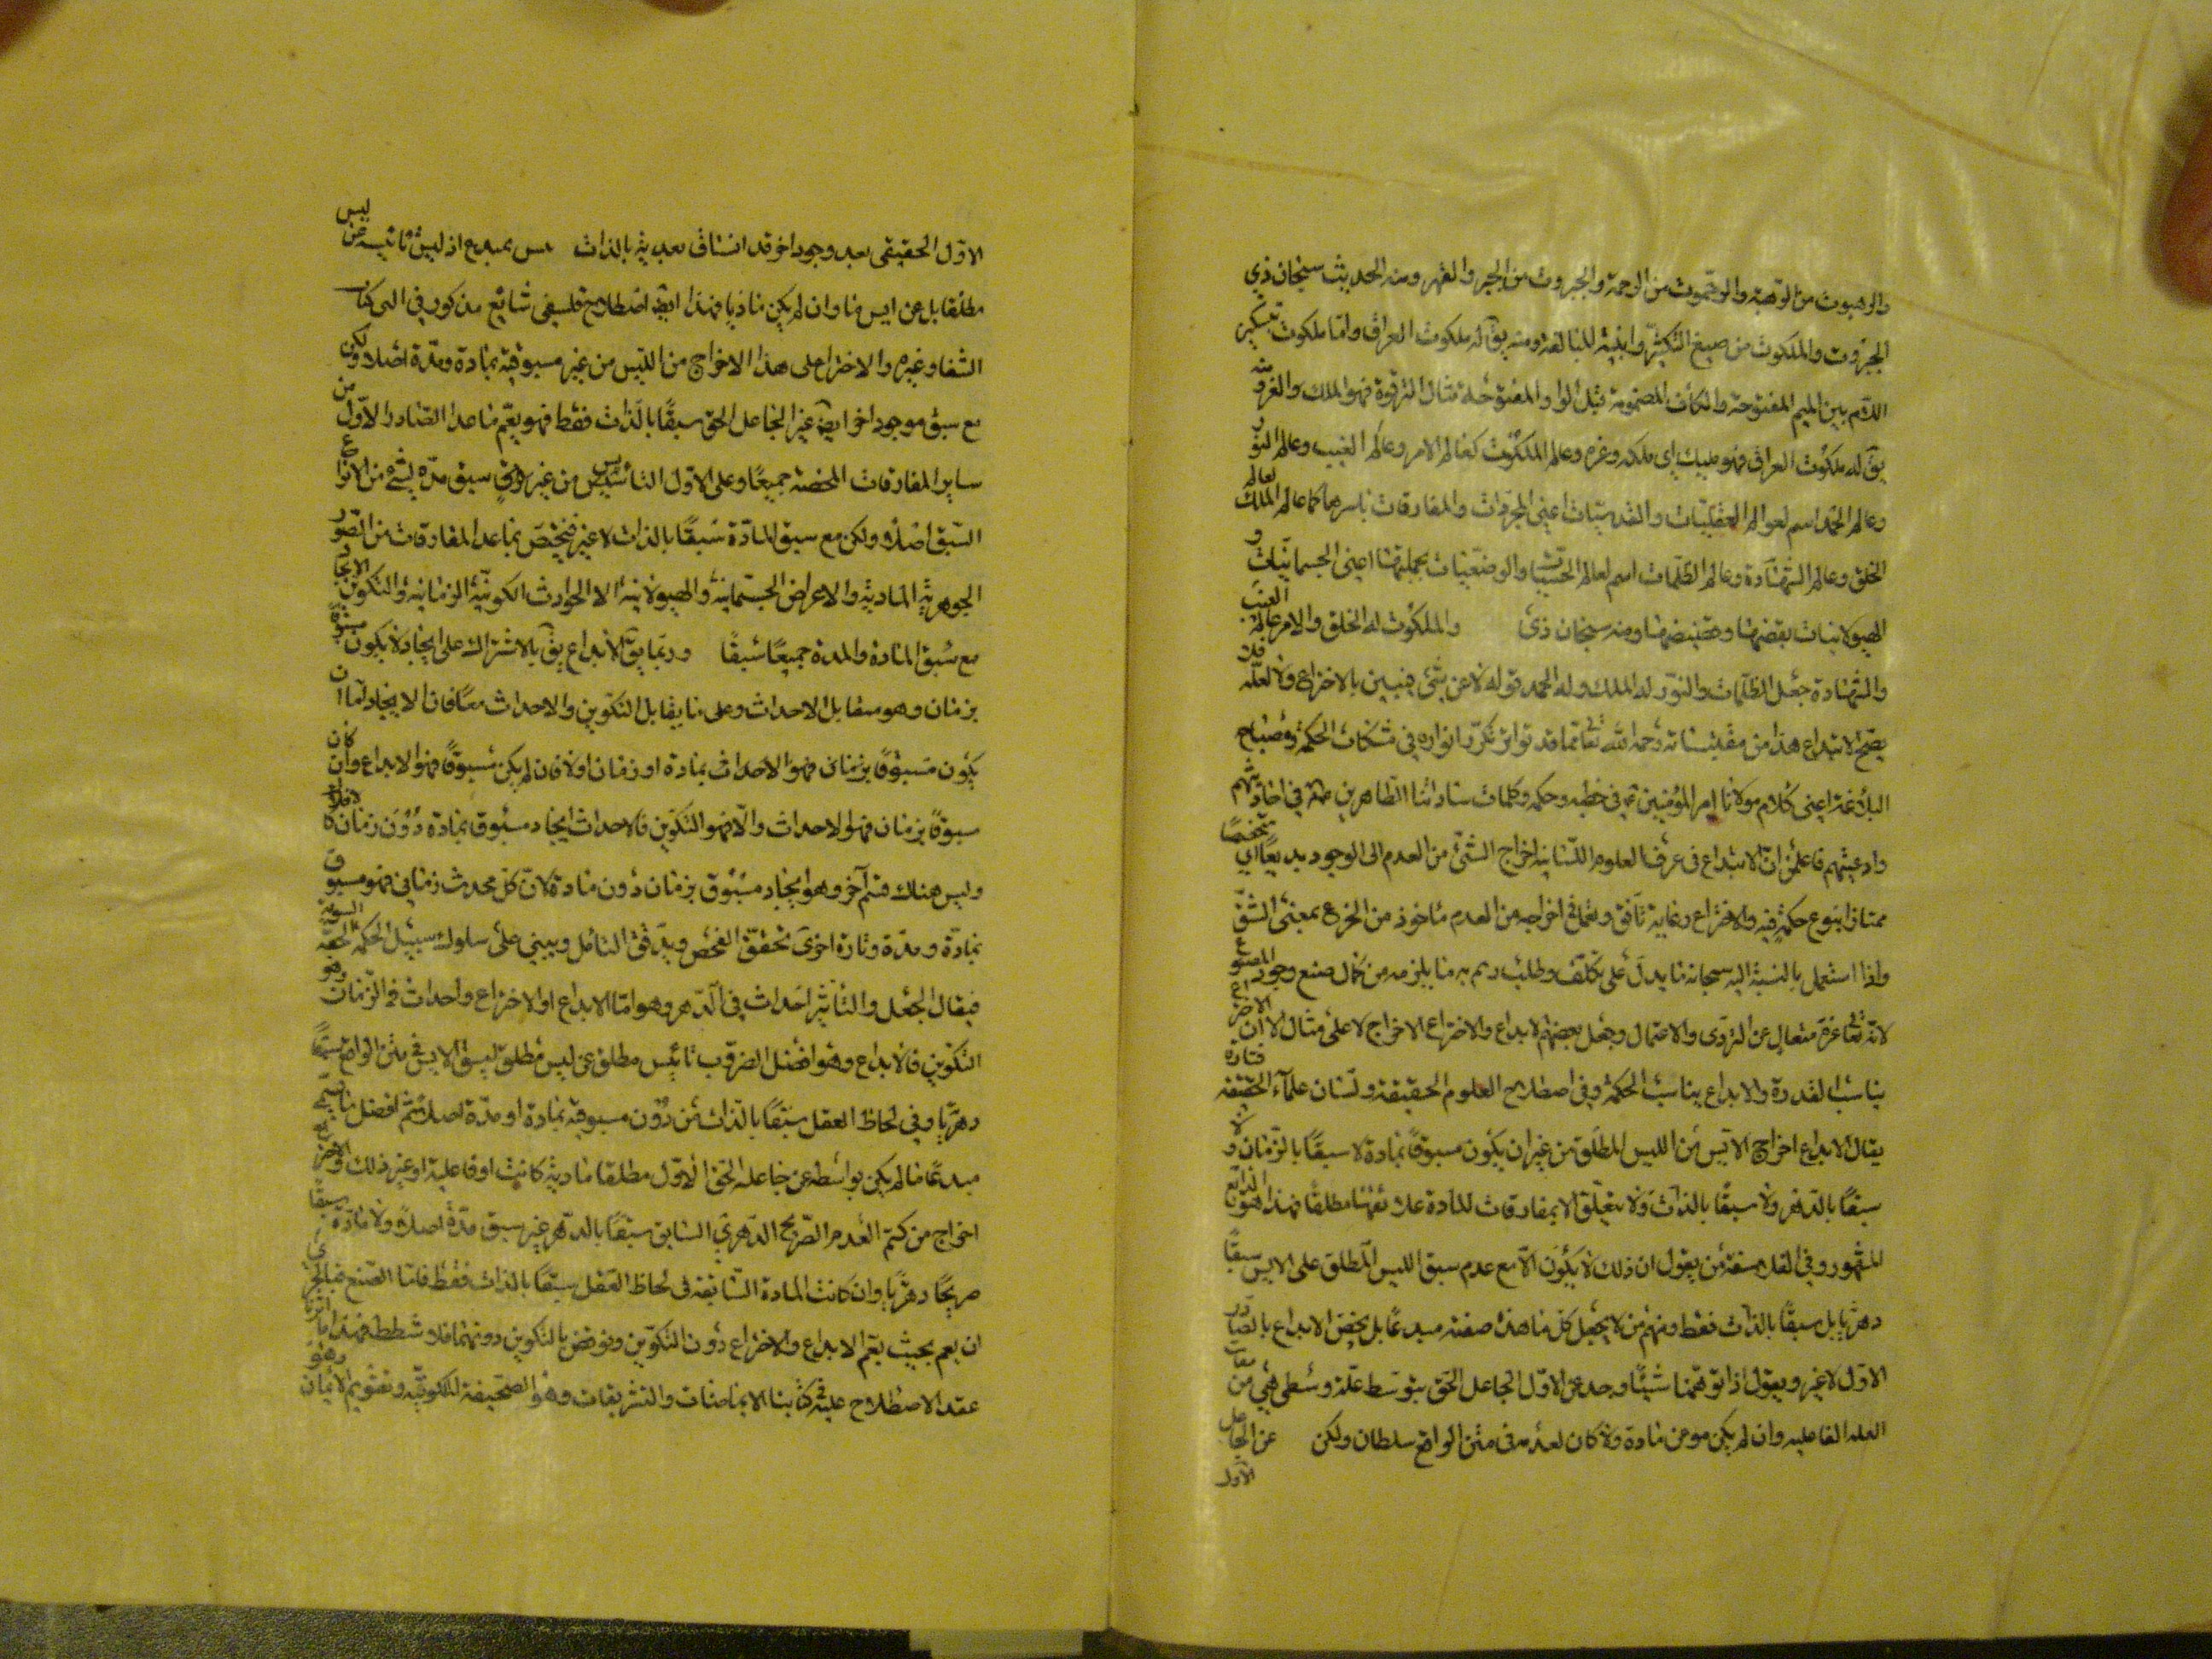 والرهبوت من الرهبة والرحموت من الرحمة والجبروت من الجبر والقهر ومنه الحديث سبحان ذي
الجبروت والملكوت من صيغ التكثير وابنية المبالغة ومنه يق له ملكوت العراق واما ملكوت بتسكين
اللام بين الميم المفتوحة والكاف المضمومة قبل الواو المفتوحة مثال الترقوة فهو الملك والعز ومنه
يق له ملكوت العراق فهو مليك اي ملكه وعزه وعالم الملكوت كعالم الامر وعالم الغيب وعالم النور
وعالم الحمد اسم لعوالم العقليات والقدسيات اعني المجردات والمفارقات باسرها كما عالم الملك لعالم
الخلق وعالم الشهادة وعالم الظلمات اسم لعالم الحسيات والوضعيات بجملتها اعني الجسمانيات و
الهيولانيات بقضها وقضيضها ومنه سبحان ذي والملكوت له الخلق والامر عالم الغيب
والشهادة جعل الظلمات والنور له الملك وله الحمد قوله لا من شيء فيبين بالاختراع ولا لعلة فلا
يصح الابتداع هذا من مقتبساته رحمه الله تعالى مما قد تواتر تكرر انواره في مشكات الحكمة ومصباح
البلاغة اعني كلام مولانا امير المؤمنين في خطبه وحكمه وكلمات ساداتنا الطاهرين في احاديثهم
وادعيتهم فاعلمن ان الابتداع في عرف العلوم اللسانية اخراج الشيء من العدم الى الوجود بديعا اي متخصصا
ممتازا بنوع حكمة فيه والاختراع رعاية تافق وتعمل في اخراجه من العدم ماخوذ من الخرع بمعنى الشق
واذا استعمل بالنسبة اليه سبحانه ما يدل على تكلف وطلب ريم به ما يلزمه من كمال صنع وجود المصنوع
لانه تعالى عزه متعال عن التروى والاعتمال وجعل بعضهم الابداع والاختراع الاخراج لا على مثال الا ان الاختراع
يناسب القدرة والابداع يناسب الحكمة وفي اصطلاح العلوم الحقيقية ولسان علماء الحقيقة فتارة
يقال الابداع اخراج الايس من الليس المطلق من غير ان يكون مسبوقا بمادة لا سبقا بالزمان ولا
سبقا بالدهر ولا سبقا بالذات ولا يتعلق الا بمفارقات المادة علائقها مطلقا فهذا هو الذائع
المشهور وفي الفلاسفة من يقول ان ذلك لا يكون الا مع عدم سبق الليس المطلق على الايس سبقا
دهريا بل سبقا بالذات فقط ومنهم من لا يجعل كل ما هذه صفته مبدعا بل يخص الابداع بالصادر
الاول لا غير ويقول اذا توهمنا شيئا وجد عن الاول الجاعل الحق بتوسط علة وسطى هي من
العلة الفاعلية وان لم يكن من مادة ولا كان لعدمه في متن الواقع سلطان ولكن عن الجاعل
الاول
الاول الحقيقي بعد وجود اخر قد انساق بعدية بالذات ليس بمبدع اذ ليس تاييسه عن ليس
مطلقا بل عن ايس ما وان لم يكن ماديا فهذا ايض اصطلاح فلسفي شائع مذكور في الهى كتاب
الشفا وغيره والاختراع على هذا الاخراج من الليس من غير مسبوقية بمادة ومدة اصلا ولكن
مع سبق موجود اخر ايض غير الجاعل الحق سبقا بالذات فقط فهو يعم ما عدا الصادر الاول من
ساير المفارقات المحضة جميعا وعلى الاول التاييس من غير سبق مدة بشيء من الانواع
السبق اصلا ولكن مع سبق المادة سبقا بالذات لا غير فيختص بما عدا المفارقات من الصور
الجوهرية المادية والاعراض الجسمانية والهيولانية الا الحوادث الكونية الزمانية والتكوين الايجاد
مع سبق المادة والمدة جميعا سبقا وربما يق الابداع يق بالاشتراك على ايجاد لا يكون مسبوقا
بزمان وهو مقابل الاحداث وعلى ما يقابل التكوين والاحداث معا فان الايجاد اما ان
يكون مسبوقا بزمان فهو الاحداث بمادة او زمان اولا فان لم يكن مسبوقا فهو الابداع وان كان
مسبوقا بزمان فهو الاحداث والا فهو التكوين فالاحداث ايجاد مسبوق بمادة دون زمان كالافلاك
وليس هناك قسم آخر وهو ايجاد مسبوق بزمان دون مادة لان كل محدث زماني فهو مسبوق
بمادة ومدة وتارة اخرى تحقق الفحص ويدقق التامل ويبنى على سلوك سبيل الحكمة الحقة السوية
فيقال الجعل والتاثير احداث في الدهر وهو اما الابداع او الاختراع واحداث في الزمان وهو
التكوين فالابداع وهو افضل الضروب تاييس مطلق عن ليس مطلق ليسبق الايس في متن الواقع سبقا
دهريا وفي لحاظ العقل سبقا بالذات من دون مسبوقية بمادة او مدة اصلا ثم افضل
مبدعا ما لم يكن بواسطة عن جاعله الحق الاول مطلقا مادية كانت او فاعلية او غير ذلك والاختراع
اخراج من كتم العدم الصريح الدهري السابق سبقا بالدهر غير سبق مدة اصلا ولا مادة سبقا
صريحا دهريا وان كانت المادة السابقة في لحاظ العقل سبقا بالذات فقط فاما الصنع
ان يعم بحيث يعم الابداع والاختراع دون التكوين بالتكوين دونهما فلا شطط فهذا
عقد الاصطلاح عليه في كتابنا الايماضات والتشريقات وهو الصحيفة الملكوتية وتقويم الايمان وهو